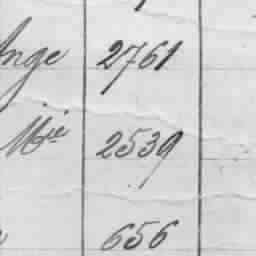 Ange 2761
Mie 2539
656